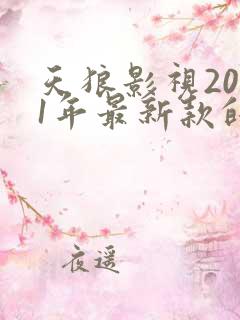 天狼影視20
1年最新款
夜遥